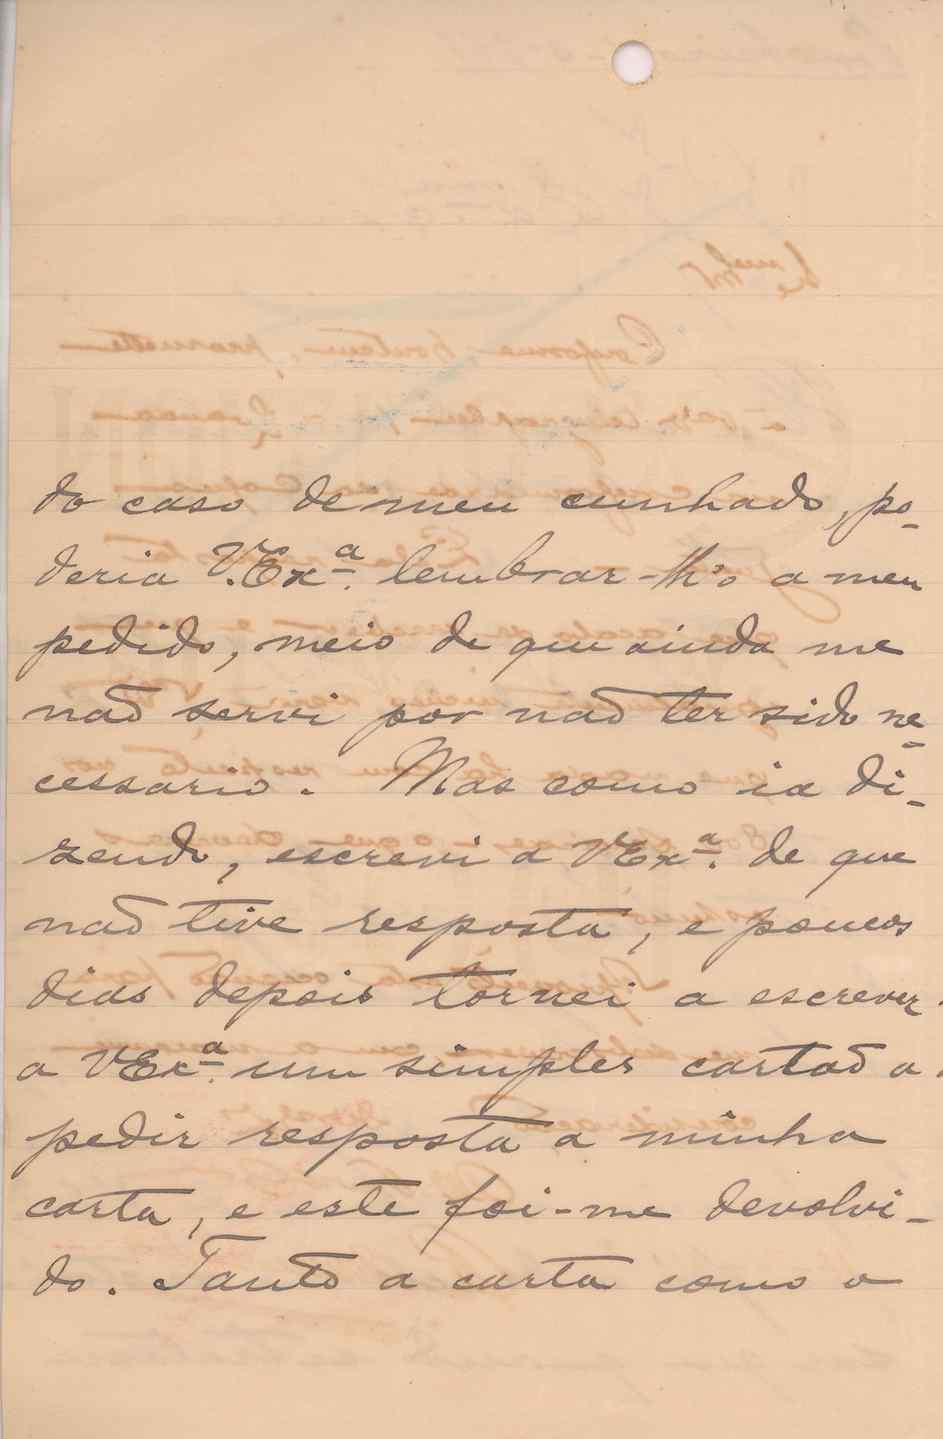 do caso de meu cunhado, po-
deria V. Exª. lembrar-lh'o a meu
pedido, meio de que ainda me
não servi por não ter sido ne-
cessario. Mas como ia di-
zendo, escrevi a VExª. de que
não tive resposta, e poucos
dias depois tornei a escrever
a VExª. um simples cartão a
pedir resposta a minha
carta, e este foi-me devolvi-
do. Tanto a carta como o